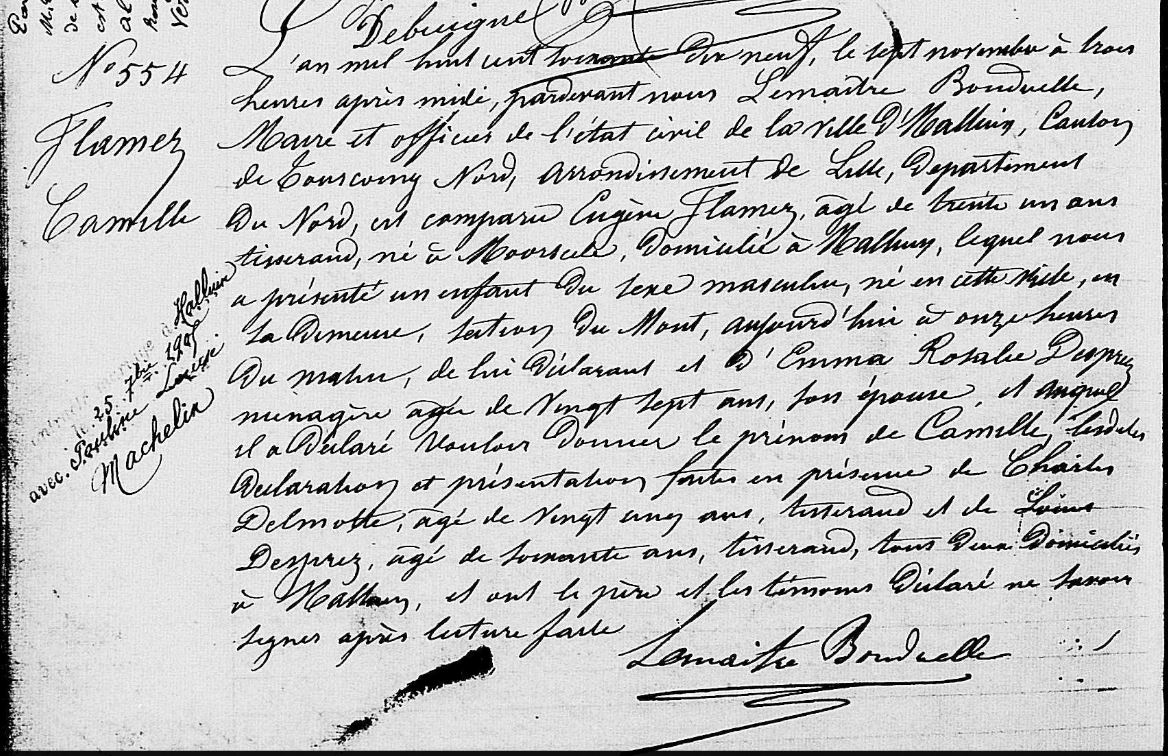 Debuigne
N° 554
Flamez
Camille
L'an mil huit cent soixante dix neuf, le sept novembre à trois
heures après midi, pardevant nous Lemaitre Bonduelle,
Maire et officier de l'état civil de la ville d'Halluin, Canton
de Tourcoing Nord, arrondissement de Lille, Département
du Nord, est comparu Eugène Flamez, agé de trente un ans
tisserand, né à Moorsele, domicilié à Halluin, lequel nous
a présenté un enfant du sexe masculin, né en cette ville, en
sa demeure, section du Mont, aujourd'hui à onze heures
du matin, de lui déclarant et d'Emma Rosalie Desprez
ménagère agée de vingt sept ans, son épouse, et auquel
il a déclaré vouloir donner le prénom de Camille, lesdites
déclaration et présentation faites en présence de Charles
Delmotte, agé de vingt cinq ans, tisserand et de Louis
Desprez, agé de soixante ans, tisserand, tous deux domiciliés
à Halluin, et ont le père et les témoins déclaré ne savoir
signer après lecture faite
Lemaitre Bonduelle
à Halluin
le 25 7bre
avec Pauline
Machelin